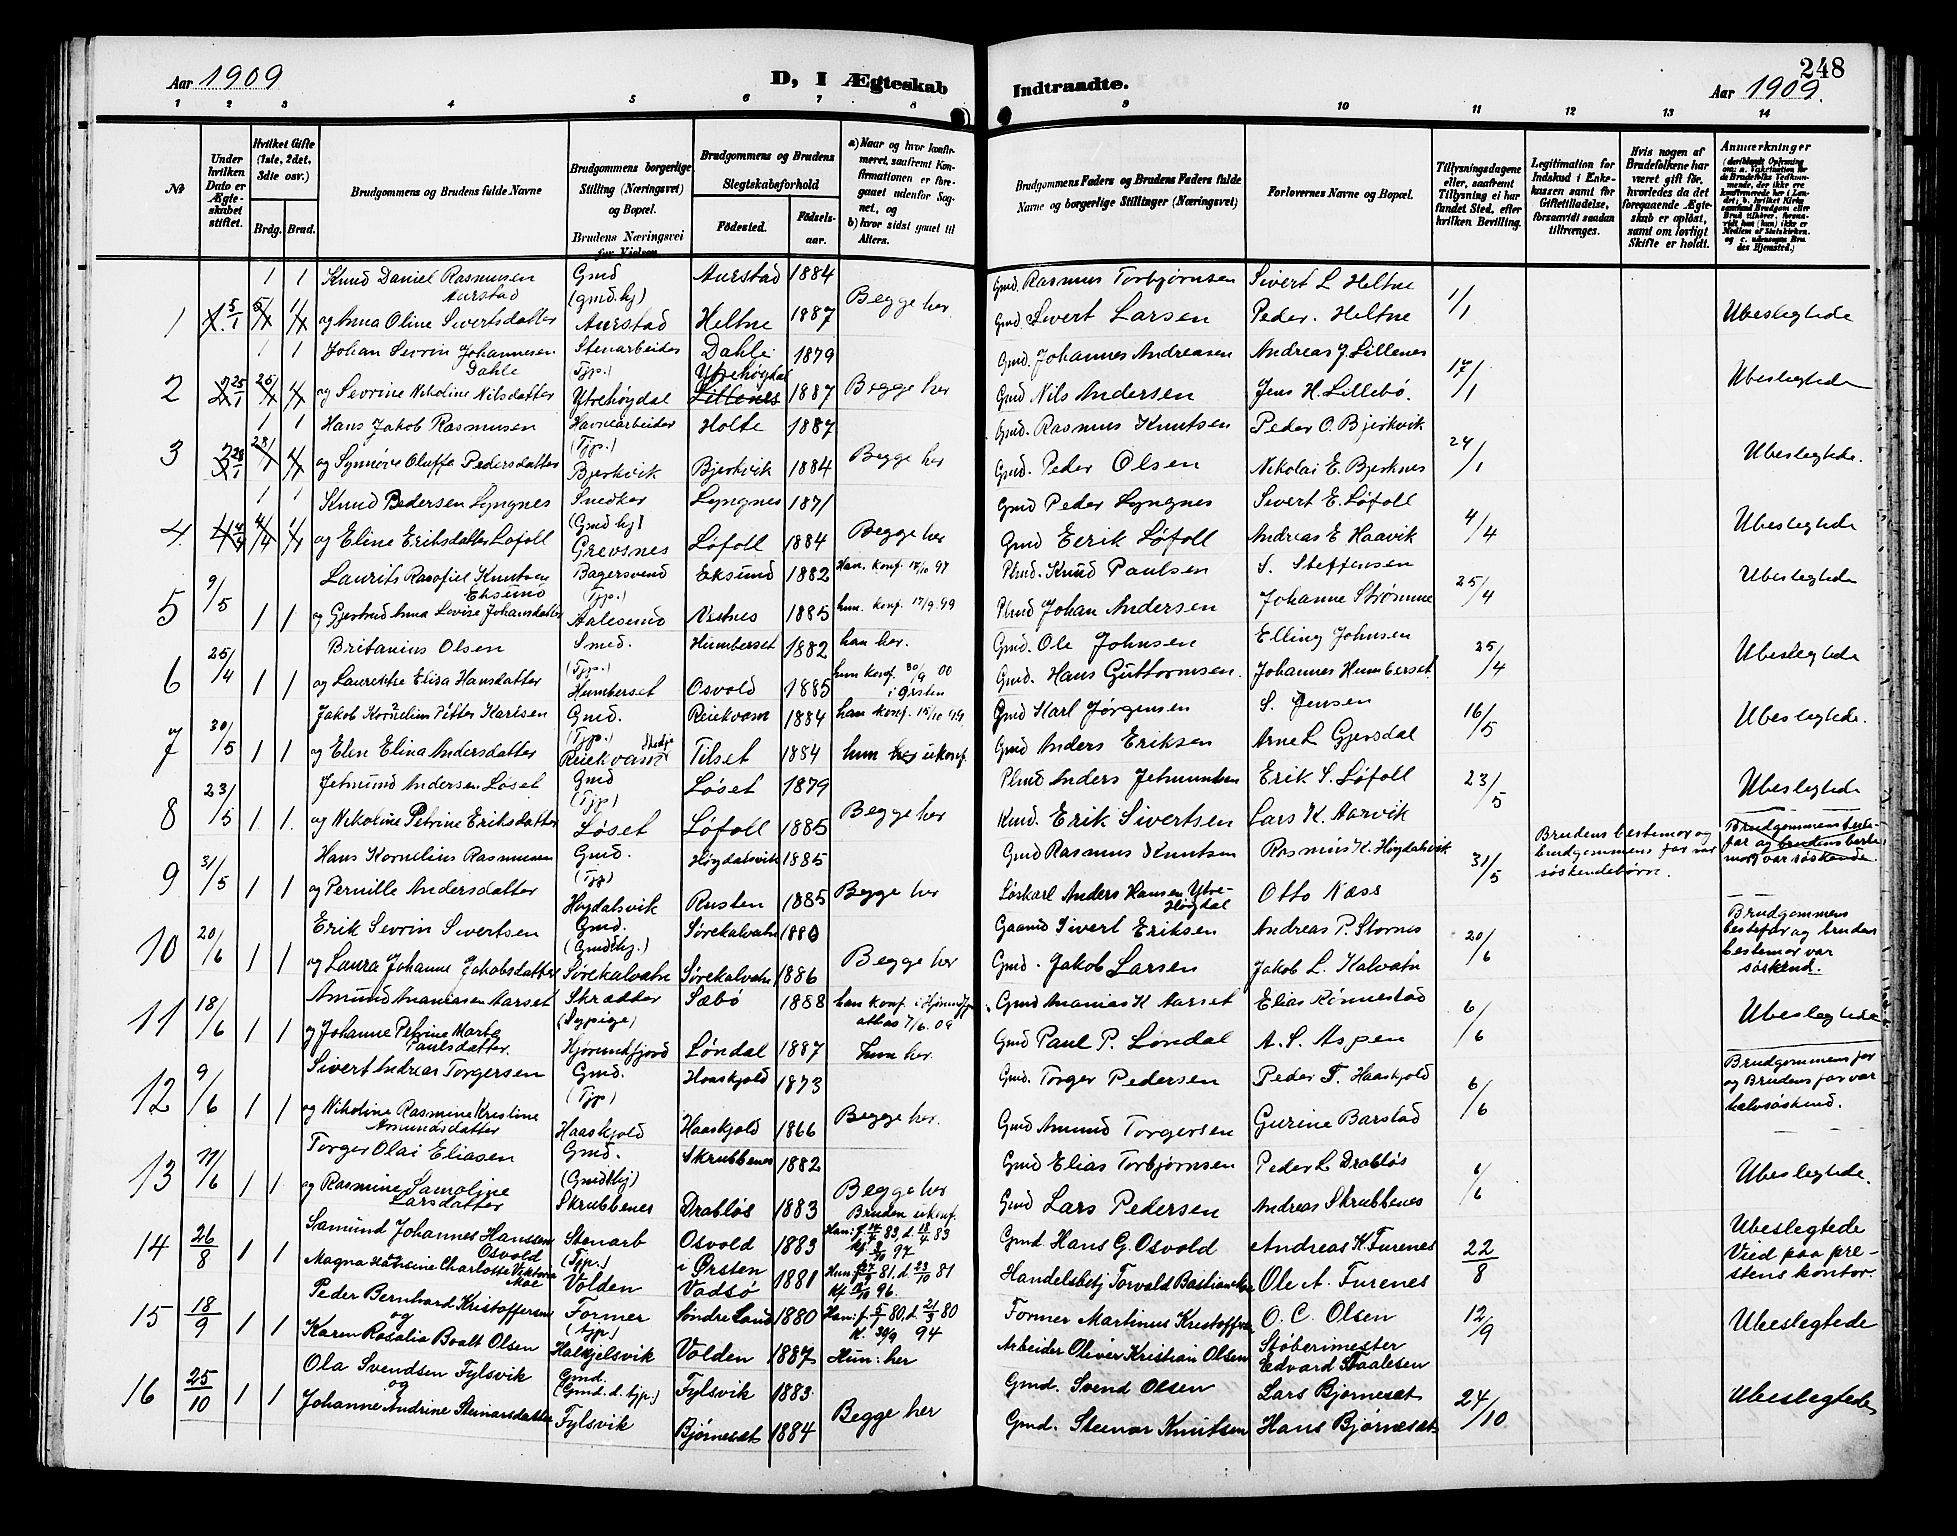 Aar 1909
D, I Ægteskab
Indtraadte.
248
Aar 1909.
1 2 3 4 5 6 7 8
9 10 11 12 13 14
No
Under hvilken Dato er Ægteskabet stiftet.
Hvilket Gifte (1ste, 2det, 3die osv.)
Brdg. Brud.
Brudgommens og Brudens fulde Navne
Brudgommens borgerlige Stilling (Næringsvei) og Bopæl.
Brudens Næringsvei før Vielsen
Brudgommens og Brudens Slegtskabsforhold
Fødested.
Fødselsaar.
a) Naar og hvor konfirmeret, saafremt Konfirmationen er foregaaet udenfor Sognet, og
b) hvor sidst gaaet til Alters.
Brudgommens Faders og Brudens Faders fulde Navne og borgerlige Stillinger (Næringsvei)
Forlovernes Navne og Bopæl.
Tillysningsdagene eller, saafremt Tillysning ei har fundet Sted, efter hvilken Bevilling.
Legitimation for Indskud i Enkekassen samt for Giftetilladelse, forsaavidt saadan tiltrænges.
Hvis nogen af Brudefolkene har været gift før, hvorledes da det foregaaende Ægteskab er opløst, samt om lovligt Skifte er holdt.
Anmærkninger
1 1 Knud Daniel Rasmusen Gmd Aurstad 1884 Gmd. Rasmus Torbjørnsen Sivert L Heltne
Aurstad (gmd.hj) Begge her 1/1
1 5/1 og Anna Oline Sivertsdatter Aurstad Heltne 1887 Gmd Sivert Larsen Peder. Heltne Ubeslegtede
1 1 Johan Sevrin Johannesen Stenarbeider Dahle 1879 Gmd. Johannes Andreasen Andreas J. Lillenes
Dahle (Tjp.) Ytrehøgdal 17/1
2 25/1 og Sevrine Nikoline Nilsdatter Ytrehøgdal Lillenes 1887 Begge her Gmd Nils Andersen Jens H. Lillebø. Ubeslegtede
1 1 Hans Jakob Rasmusen Havnearbeider Holte 1887 Gmd. Rasmus Knutsen Peder O. Bjerkvik
(Tjp.) 24/1
3 28/1 og Synnøve Oluffa Pedersdatter Bjerkvik Bjerkvik 1884 Begge her Gmd. Peder Olsen Nikolai E. Bjerknes Ubeslegtede.
1 1 Knud Pedersen Lyngnes Snedker Lyngnes 1871 Gmd Peder Lyngnes Sivert E. Løfoll
(Gmd hj) 4/4
4. og Eline Eriksdatter Løfoll Grevsnes Løfoll 1884 Begge her Gmd Eerik Løfoll Andreas E Haavik Ubeslegtede
9/5 Laurits Rasofiel Knutsen Bagersvend Eksund 1882 Han. konf. 17/10 97 Plmd. Knud Paulsen S. Steffensen
Eksund (Tjp.) 25/4 Ubeslegtede
5 1 1 og Gjertrud Anna Lovise Johansdatter Aalesund Nestnes 1885 hun. konf. 17/9. 99 Plmd Johan Andersen Johanne Strømme
25/4 Britanius Olsen Smed. Humberset 1882 han her. Gmd. Ole Johnsen Elling Johnsen
(Tjp.) hun konf. 30/9 00 25/4 Ubeslegtede
6 1 1 og Laurentse Elisa Hansdatter Humberset Osvold 1885 i Ørsten Gmd. Hans Guttormsen. Johannes Humberset
30/5 Jakob Kornelius Petter Karlsen Gmd. Reiekvam 1884 han konf. 15/10 99 Gmd Karl Jørgensen S. Jensen 16/5 Ubeslegtede.
(Tjp.)
7 1 1 og Elen Elina Andersdatter Reiekvam Tilset 1884 hun her ukonf. Gmd Anders Eriksen Arne L Gjersdal
23/5 Jetmund Andersen Løset Gmd Løset 1879 Plmd Anders Jetmundsen Erik S. Løfoll 23/5 Ubeslegtede
(Tjp)
8 1 1. og Nikoline Petrine Eriksdatter Løset Løfoll 1885 Begge her Kmd. Erik Sivertsen Lars K. Aarvik
31/5 Hans Kornelius Rasmusen Gmd. Høgdalsvik 1885 Gmd Rasmus Knutsen Rasmus K. Høgdalsvik 31/5 Brudens bestemor og brudgommens far var søskendebørn. Brudgommens bestefar og brudens bestemor var søskende.
(Tjp)
9 1 1 og Pernille Andersdatter Høgdalsvik Rusten 1885 Begge her Løskarl Anders Hansen Ytre-Høgdal Otto Næss
20/6 Erik Sevrin Sivertsen Gmd. Sørekalvatn 1880 Gaamd Sivert Eriksen Andreas P. Stornes 20/6 Brudgommens bestefar og brudens bestemor var søskend.
(Gmdthj.)
10 1 1 og Laura Johanne Jakobsdatter Sørekalvatn Sørekalvatn 1886 Begge her Gmd. Jakob Larsen Jakob L. Kalvatn
18/6 Amund Ananiasen Aarset Skrædder Sæbø 1888 han konf. i Hjørundfj. Gmd Ananias K Aarset Elias Rønnestad 6/6 Ubeslegtede
(Sypige) althas 7/6. 09
11 1 1 og Johanne Petrine Marta Paulsdatter. Hjørundfjord Løndal 1887 hun her. Gmd Paul P. Løndal A. S. Aspen
9/6 Sivert Andreas Torgersen Gmd. Haaskjold 1873 Gmd. Torger Pedersen Peder T. Haaskjold 6/6 Brudgommens far og Brudens far var halvsøskend.
(Tjp)
12 1 1 og Nikoline Rasmine Kristine Amundsdatter Haaskjold Haaskjold 1866 Begge her. Gmd Amund Torgersen Gurine Barstad
Torger Olai Eliasen Gmd. Skrubbenes 1882 Gmd Elias Torbjørnsen Peder L Drabløs 6/6 Ubeslegtede.
(Gmdthj)
13 1 1 og Rasmine Samoline Larsdatter Skrubbenes Drabløs 1883 Begge her Bruden ukonf. Gmd Lars Pedersen Andreas Skrubbenes
14 26/8 1 1 Samund Johannes Hanssen Osvold Stenarb Osvold i Ørsten 1883 Gmd. Hans G. Osvold Andreas K. Furenes 22/8 Ubeslegtede Vied paa prestens kontor.
(Tjp.)
Magna Hansine Charlotte Viktoria Moe Volden Vadsø 1881 Handelsbetj Torvald Bastiansen Ole A. Furenes
15 18/9 1 1 Peder Bernhard Kristoffersen Former Søndre Land 1880 Han: f. 5/1 80, d. 21/3 80 K. 30/9 94 Former Martinus Kristoffersen O. C. Olsen 12/9 Ubeslegtede
og (tjp.)
Karen Rosalia Boalt Olsen Halkjelsvik Volden 1887 Hun: her Arbeider Oliver Kristian Olsen Støberimester Edvard Staalesen
16 25/10 1 1 Ola Svendsen Fylsvik Gmd. Fylsvik 1883. Gmd. Svend Olsen Lars Bjørneset 24/10 Ubeslegtede
og (Gmd. d. tjp.)
Johanne Andrine Steinarsdatter Fylsvik Bjørneset 1884 Begge her Gmd. Steinar Knutsen Hans Bjørneset